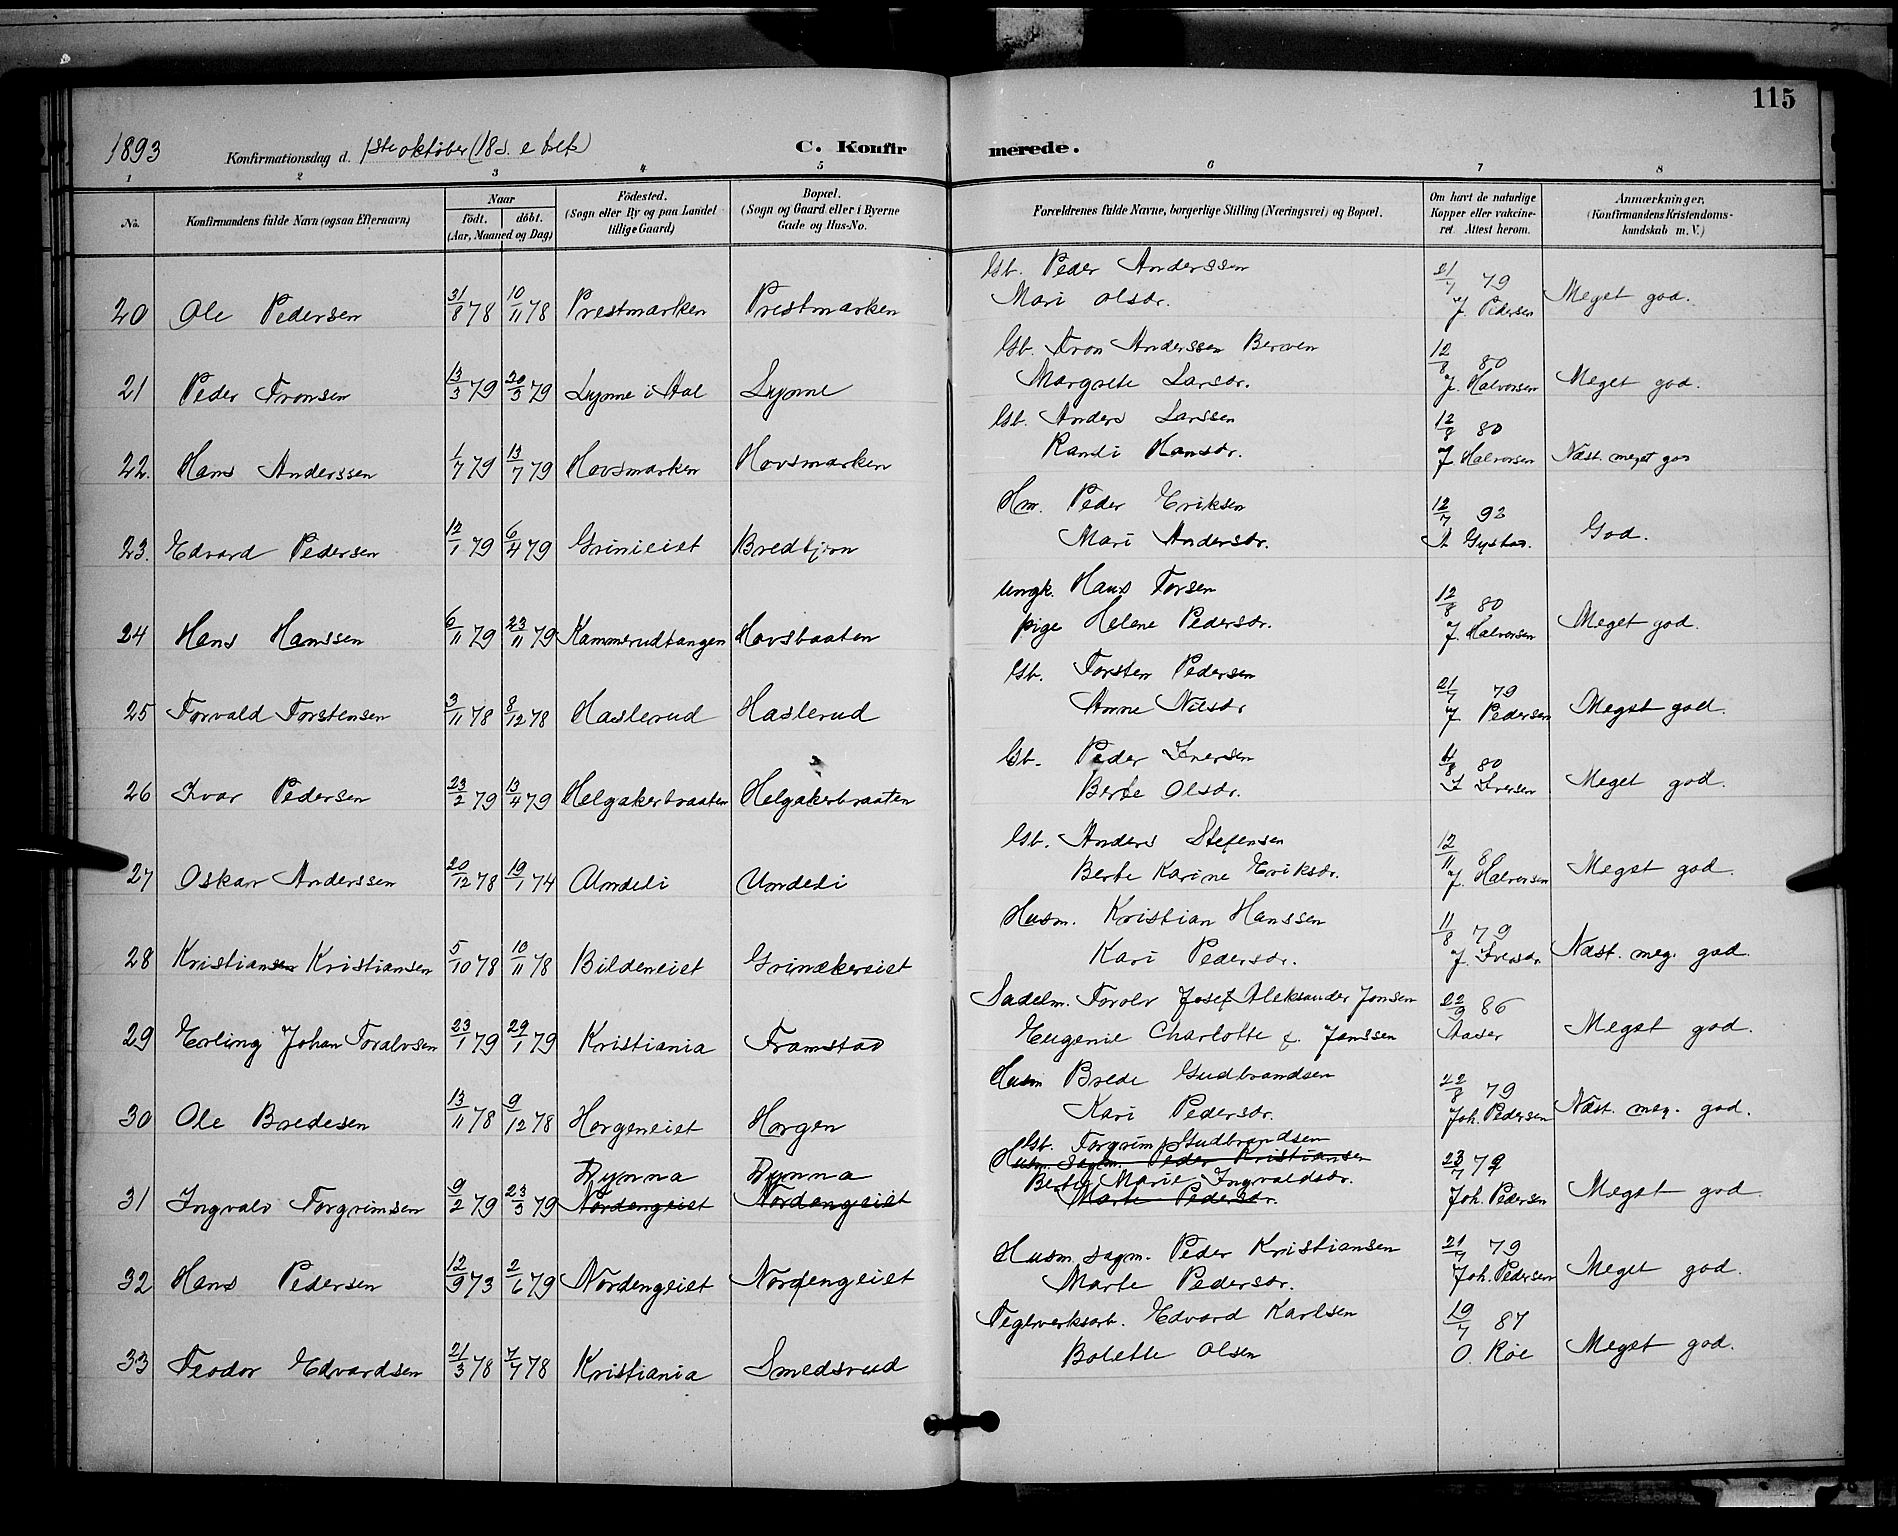 115
1893 Konfirmationsdag d. 1ste oktober (18 s. e.
C. Konfirmerede.
1 2 3 4 5 6 7 8
No. Konfirmandens fulde Navn (ogsaa Efternavn) Naar født. døbt. (Aar, Maaned og Dag) Fødested. (Sogn eller By og paa Landet tillige Gaard) Bopæl. (Sogn og Gaard eller i Byerne Gade og Hus-No. Forældrenes fulde Navne, borgerlige Stilling (Næringsvei) og Bopæl. Om havt de naturlige Kopper eller vakcineret. Attest herom. Anmærkninger, (Konfirmandens Kristendomskundskab m. V.)
Gb. Peder Anderssen 21/7 79
20 Ole Pedersen 31/8 78 10/11 78 Prestmarken Prestmarken Mari Olsdr. J. Pedersen Meget god.
Gb. Tron Anderssen Berven 12/8 80
21 Peder Tronsen 13/3 79 30/3 79 Lynne i Aal Lynne Margrete Larsdr. J. Halvorsen Meget god.
Gb. Anders Larssen 12/8 80
22. Hans Anderssen 1/7 79 13/7 79 Hovsmarken Hovsmarken Randi Hansdr. J Halvorsen Næst. meget god
Hm. Peder Eriksen 12/7 93
23. Edvard Pedersen 12/1 79 6/4 79 Grinieiet Mari Andersdr. God.
ungk. Hans Torsen 12/8 80
24 Hans Hanssen 6/11 79 23/11 79 Kammerudtangen Hovsbraaten pige Helene Pedersdr. J. Halvorsen Meget god.
Gb. Torsten Pedersen 21/7 79
25 Torvald Torstensen 3/11 78 8/12 78 Haslerud Haslerud Anne Nilsdr J Pedersen Meget god.
Gb. Peder Iversen 4/8 80
26 Ivar Pedersen 23/2 79 13/4 79 Helgakerbraaten Helgakerbraaten Berte Olsdr. I Iversen Meget god.
Gb. Anders Stefensen 12/11
27 Oskar Anderssen 20/12 78 19/1 74 Undeli Undeli Berte Karine Eriksdr. J. Halvorsen Meget god.
Husm. Kristian Hanssen 11/8 79
28 Kristiansen Kristiansen 5/10 78 10/11 78 Bildeneiet Grinakereiet Kari Pedersdr. Næst. meg. god
Sadelm. Torolv Josef Aleksander Jonsen 22/9 86
29 Erling Johan Toralvsen 23/1 79 29/1 79 Kristiania Framstad Eugenie Charlotte f. Janssen Aaser Meget god.
Husm Brede Gudbrandsen 22/8 79
30 Ole Bredesen 13/11 78 9/12 78 Horgeneiet Horgen Kari Pedersdr. Joh. Pedersen Næst. meg. god.
Gb. Torgrim Gudbrandsen
Husm. Sagm. Peder Kristiansen 23/7 79
Rynna Rynna Berte Marie Ingvaldsdr.
31 Ingvald Torgrimsen 9/2 79 23/3 79 Nordengeiet Nordengeiet Marte Pedersdr. Joh. Pedersen Meget god
Husm. sagm. Peder Kristiansen 21/7 79
32 Hans Pedersen 12/9 73 2/6 79 Nordengeiet Nordengeiet Marte Pedersdr. Joh. Pedersen Meget god.
Teglverksarb. Edvard Karlsen 19/7 87
33 Teodor Edvardsen 21/3 78 7/7 78 Kristiania Smedsrud Bolette Olsen O. Røe Meget god.